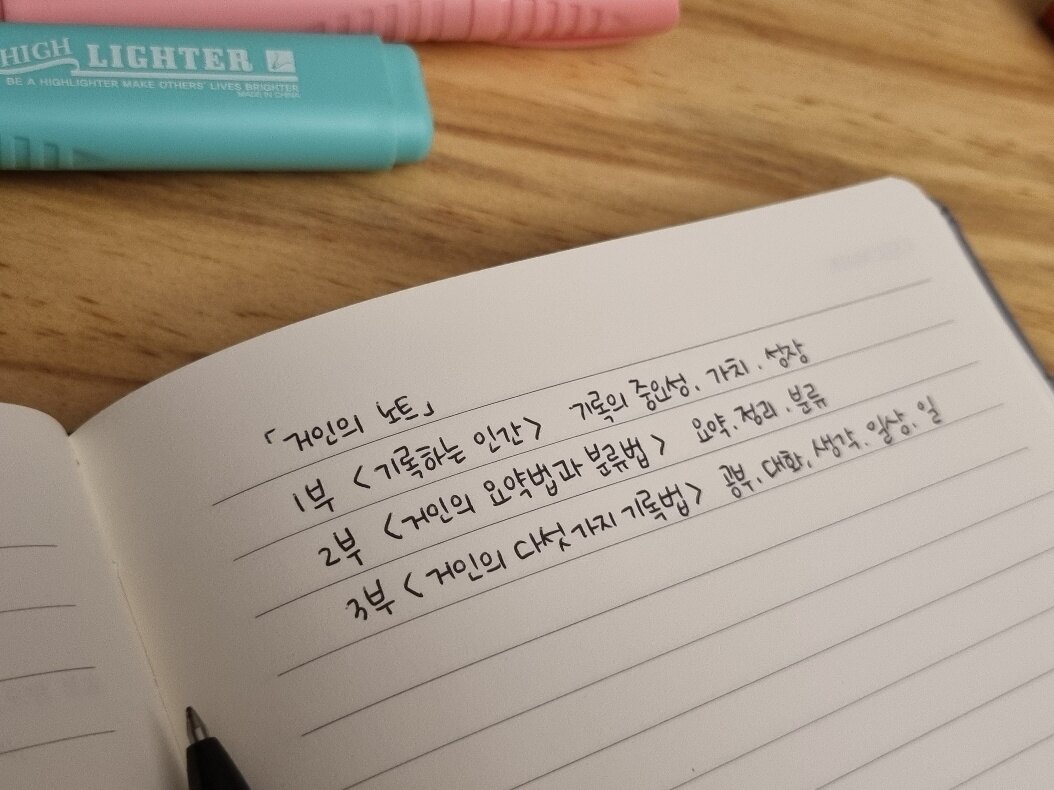 HIGH LIGHTER
BE A HIGHLIGHTER MAKE OTHERS' LIVES BRIGHTER
MADE IN CHINA
「거인의 노트」
1부 <기록하는 인간> 기록의 중요성. 가치. 성장
2부 <거인의 요약법과 분류법> 요약. 정리. 분류
3부 <거인의 다섯 가지 기록법> 공부. 대화, 생각. 일상. 일